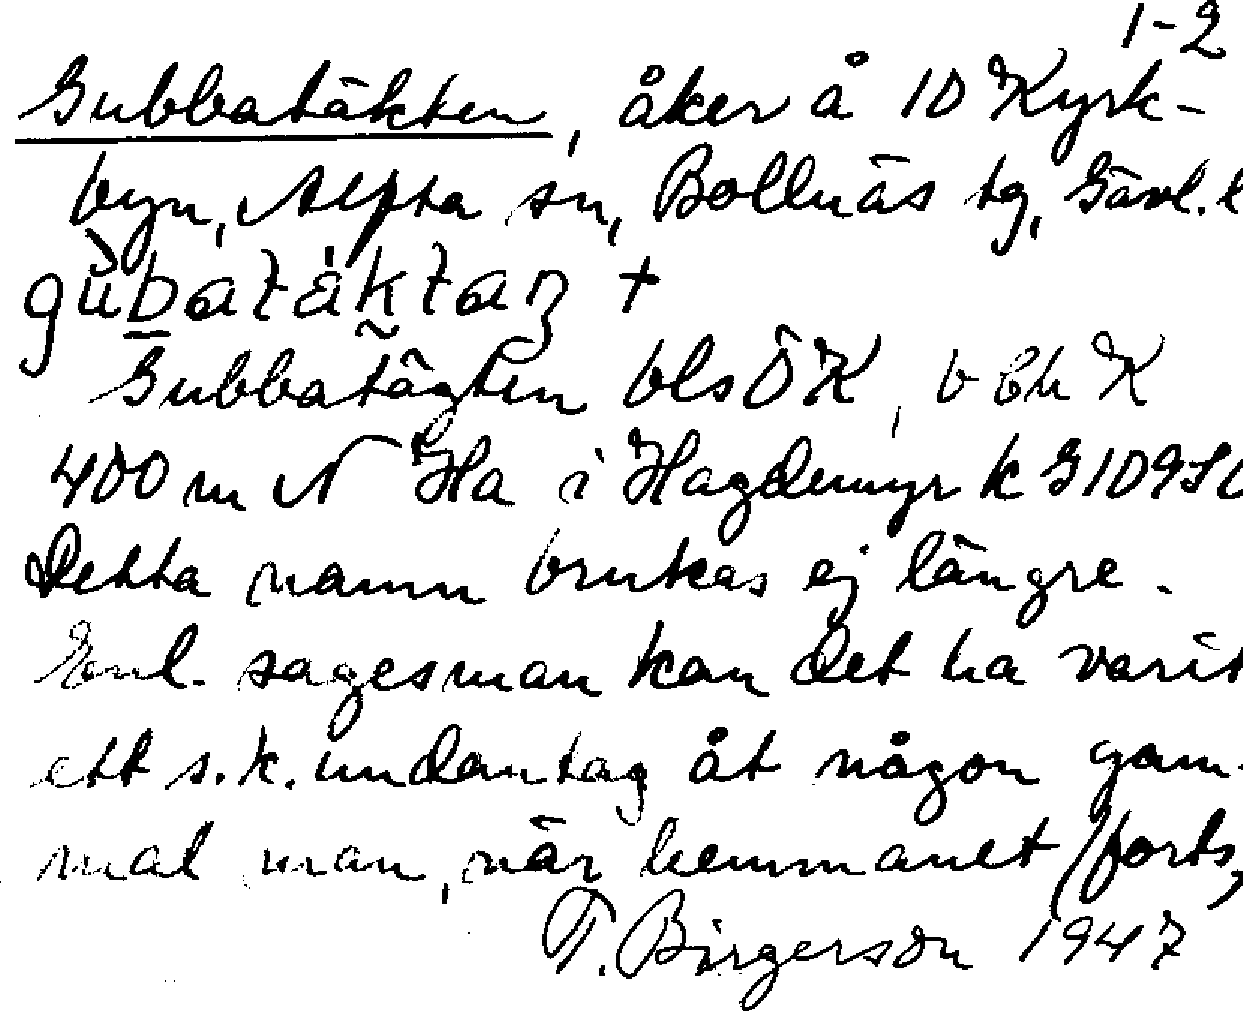 1-2
Gubbatäkten, åker å 10 Kyrk-
byn, Alfta sn, Bollnäs tg, Gävl. l
gubatäktan +
Gubbatägten bls ÖK, b Eh K
400 m N Ha i Hagdemyr k G109
Detta namn brukas ej längre.
Enl. sagesman kan det ha varit
ett s.k. undantag åt någon gam-
mal man, när hemmanet (forts,
T. Birgerson 1947